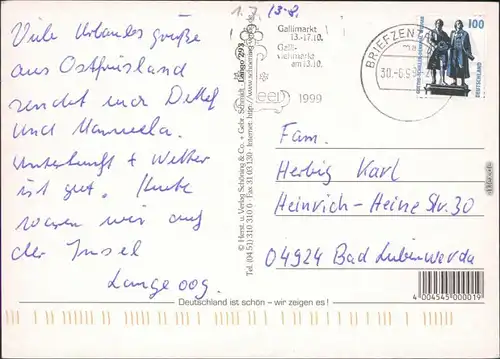 Viele Urlaubsgrüße
aus Ostfriesland
sendet euch Detlef
und Manuela.
Unterkunft + Wetter
ist gut. Heute
waren wir auf
der Insel
Langeoog.
1.7 13-8.
Gallimarkt
13.-17.10.
Galli-
viehmarkt
am 13.10.
Leer
1999
BRIEFZENTRUM
30.-6.9
100
DEUTSCHLAND
Fam.
Herbig Karl
Heinrich-Heine Str. 30
04924 Bad Liebenwerda
4 004545 000019
© Herst. u. Verlag Schöning & Co. + Gebr. Schmidt
Tel. (04 51) 310 310 0 · Fax 31 03 130 · Internet: http://www.schoening-verlag.de
Deutschland ist schön – wir zeigen es!